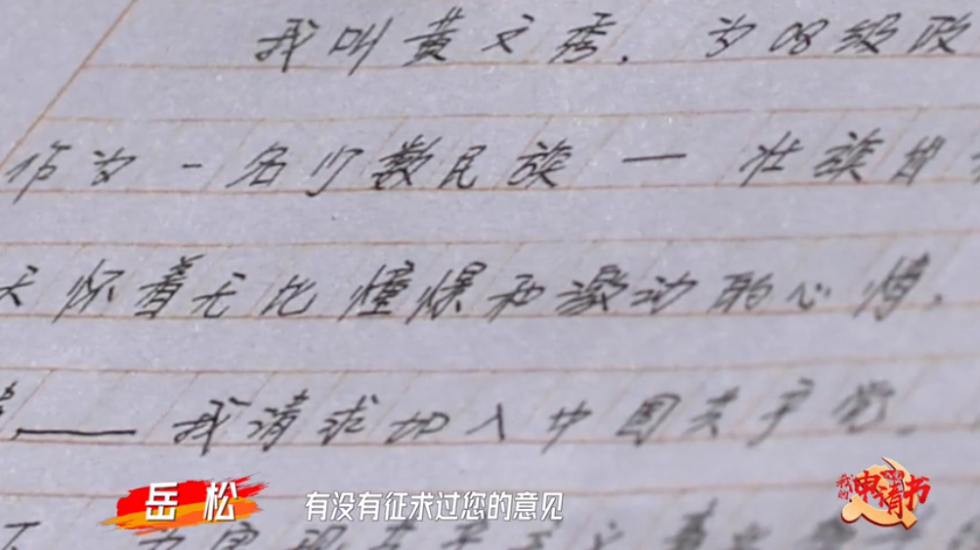 我叫黄文秀，为08级政
作为一名少数民族 — 壮族自
天怀着无比憧憬和激动的心情，
—— 我请求加入中国共产党。
岳松
有没有征求过您的意见
我的申请书